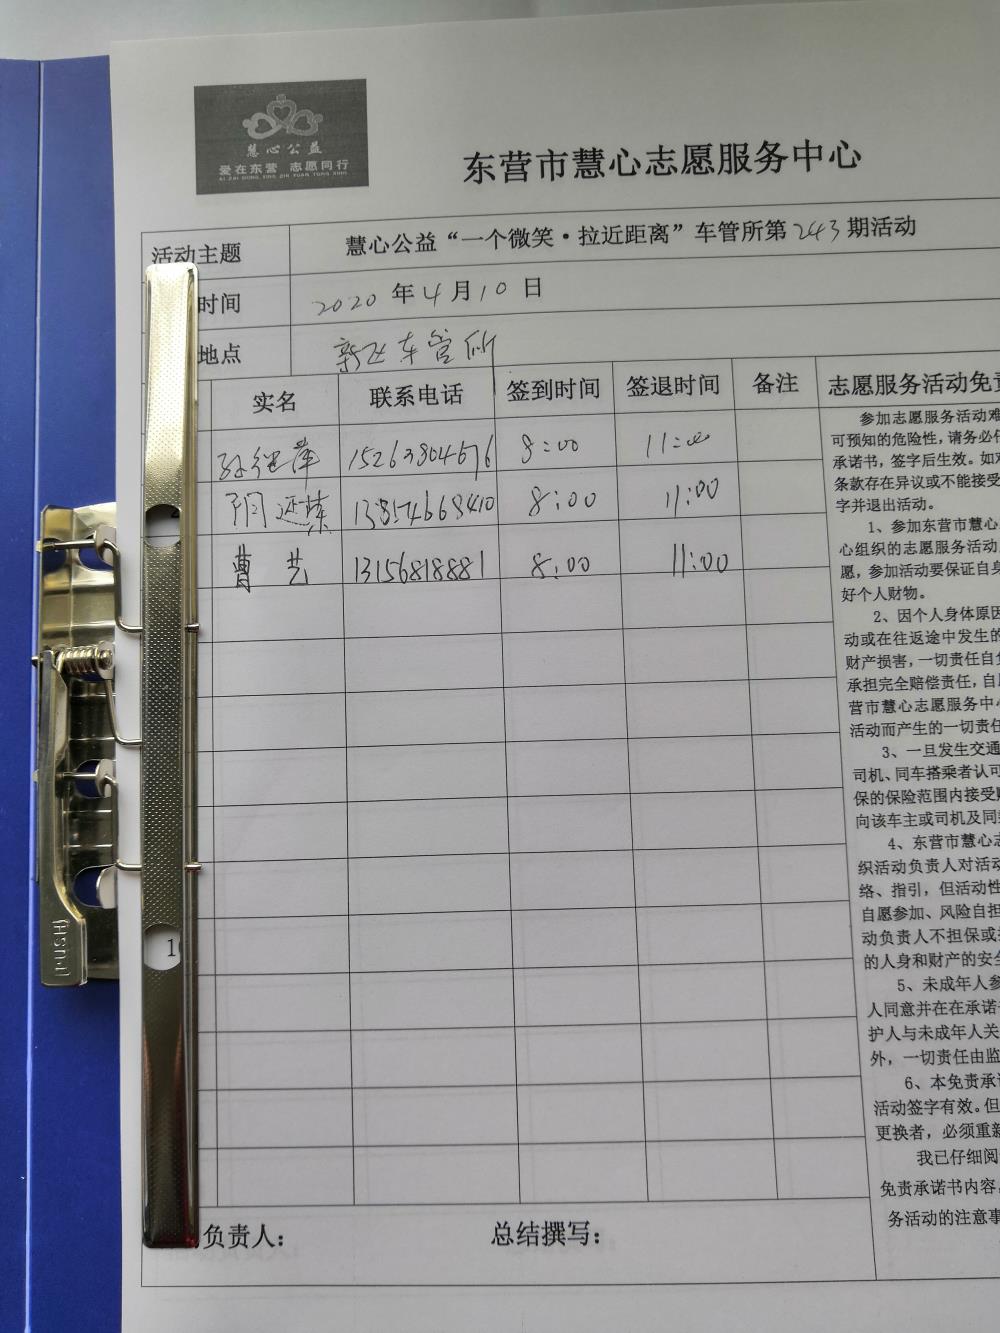 慧心公益
爱在东营 志愿同行
AI ZAI DONG YING ZHI YUAN TONG XING
东营市慧心志愿服务中心
活动主题 慧心公益“一个微笑·拉近距离”车管所第243期活动
时间 2020年4月10日
地点 车管所
实名 联系电话 签到时间 签退时间 备注 志愿服务活动免责
15263804676 8:00 11:00
8:00 11:00
曹艺 13156818881 8:00 11:00
参加志愿服务活动难
可预知的危险性,请务必仔
承诺书,签字后生效。如对
条款存在异议或不能接受
字并退出活动。
1、参加东营市慧心
心组织的志愿服务活动
愿,参加活动要保证自身
好个人财物。
2、因个人身体原因
动或在往返途中发生的
财产损害,一切责任自负
承担完全赔偿责任,自愿
营市慧心志愿服务中心
活动而产生的一切责任
3、一旦发生交通
司机、同车搭乘者认可
保的保险范围内接受赔
向该车主或司机及同
4、东营市慧心志
织活动负责人对活动
络、指引,但活动性
自愿参加、风险自担
动负责人不担保或
的人身和财产的安全
5、未成年人参
人同意并在在承诺书
护人与未成年人关
外,一切责任由监
6、本免责承诺
活动签字有效。但
更换者,必须重新
我已仔细阅
免责承诺书内容,
务活动的注意事
负责人: 总结撰写:
PUSH